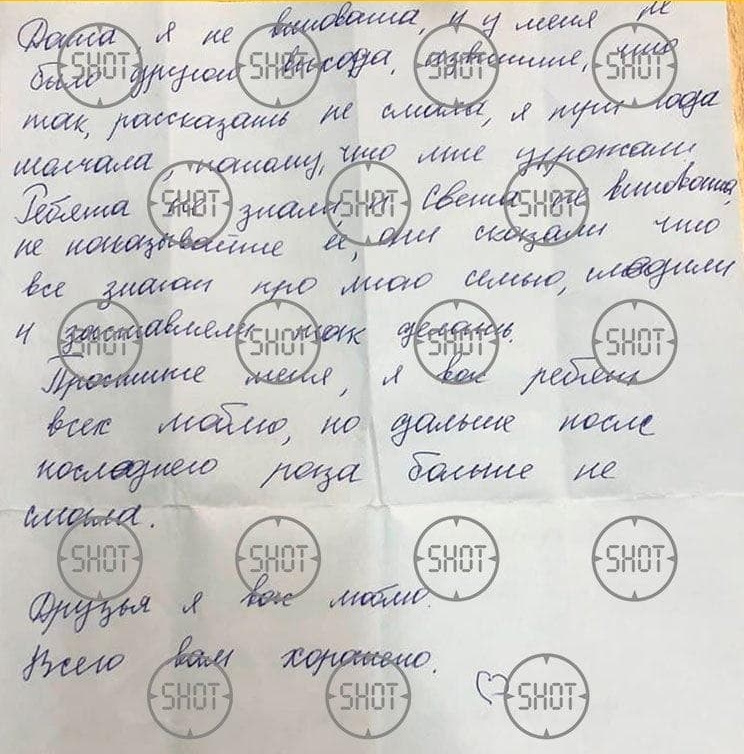 Даша, я не виновата, и у меня не
было другого выхода, извините, что
так, рассказать не смогла, я три года
молчала, потому, что мне угрожали.
Ребята не знали и Света не виновата,
не наказывайте её, они сказали что
все знают про мою семью, следили
и заставляли так делать.
Простите меня, я вас ребят
всех люблю, но дальше после
последнего раза больше не
смогла.
Друзья я вас люблю.
Всего вам хорошего.
SHOT SHOT SHOT SHOT
SHOT SHOT SHOT
SHOT SHOT SHOT SHOT
SHOT SHOT SHOT SHOT
SHOT SHOT SHOT